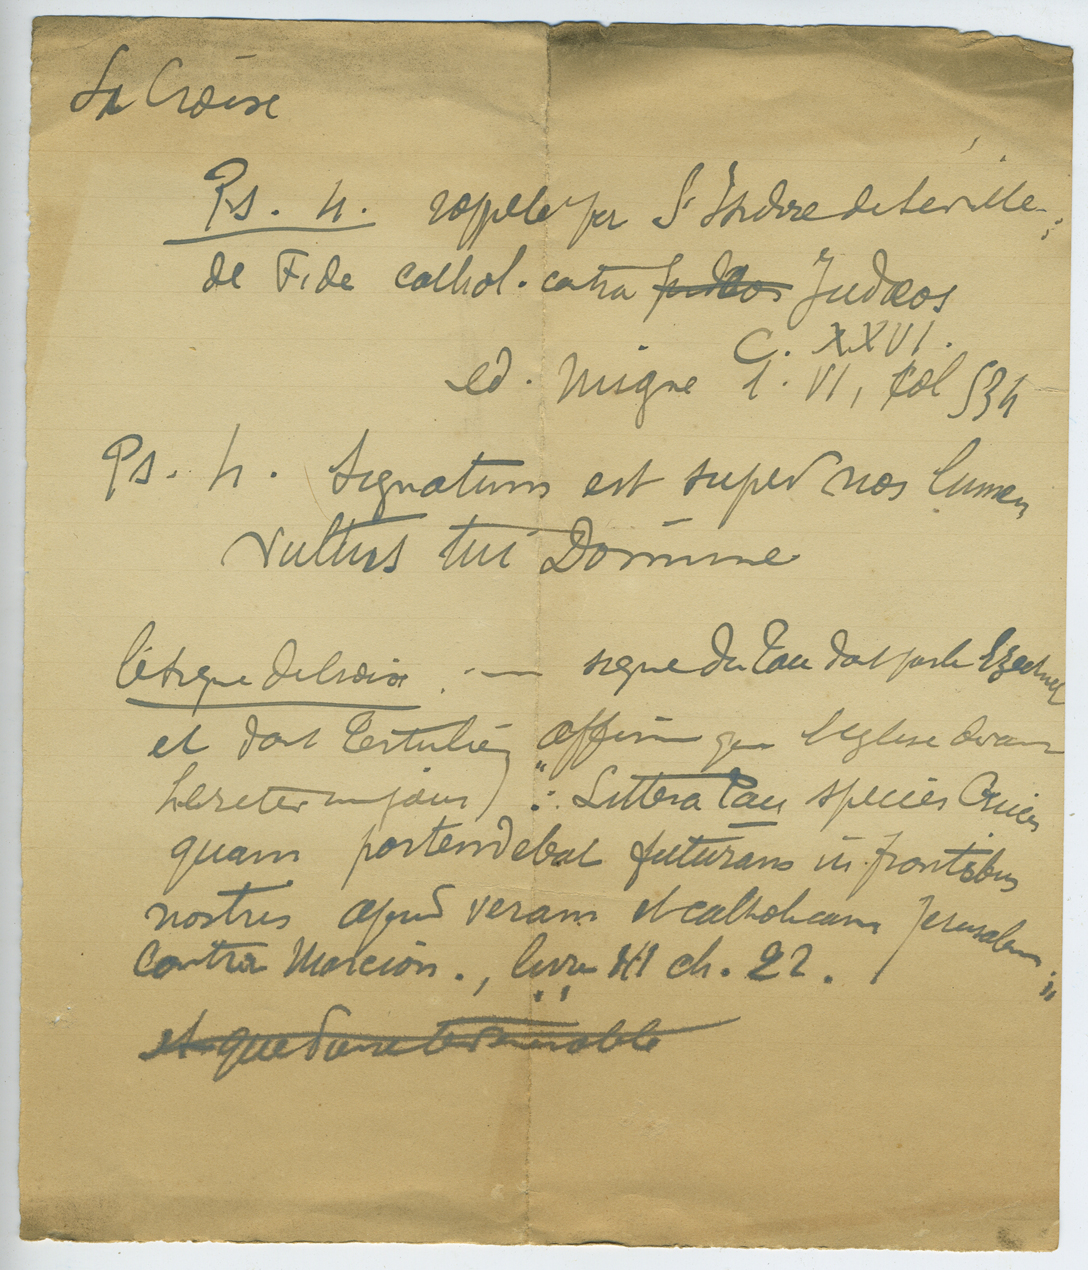 La Croix
Ps. 4. rappelé par St Isidore de Séville;
de Fide cathol. contra Judæos
C. XXVI.
ed. Migne t. VI, col 534
Ps. 4. Signatum est super nos lumen
vultus tui Domine
signe du Tau dont parle Ezechiel
et dont Tertulien affirme que l'Eglise devait
heriter un jour) : " Littera Tau species Crucis
quam portendebat futuram in frontibus
nostris apud veram et catholicam Jerusalem "
Contra Marcion., livre III ch. 22.
et que dans le venerable